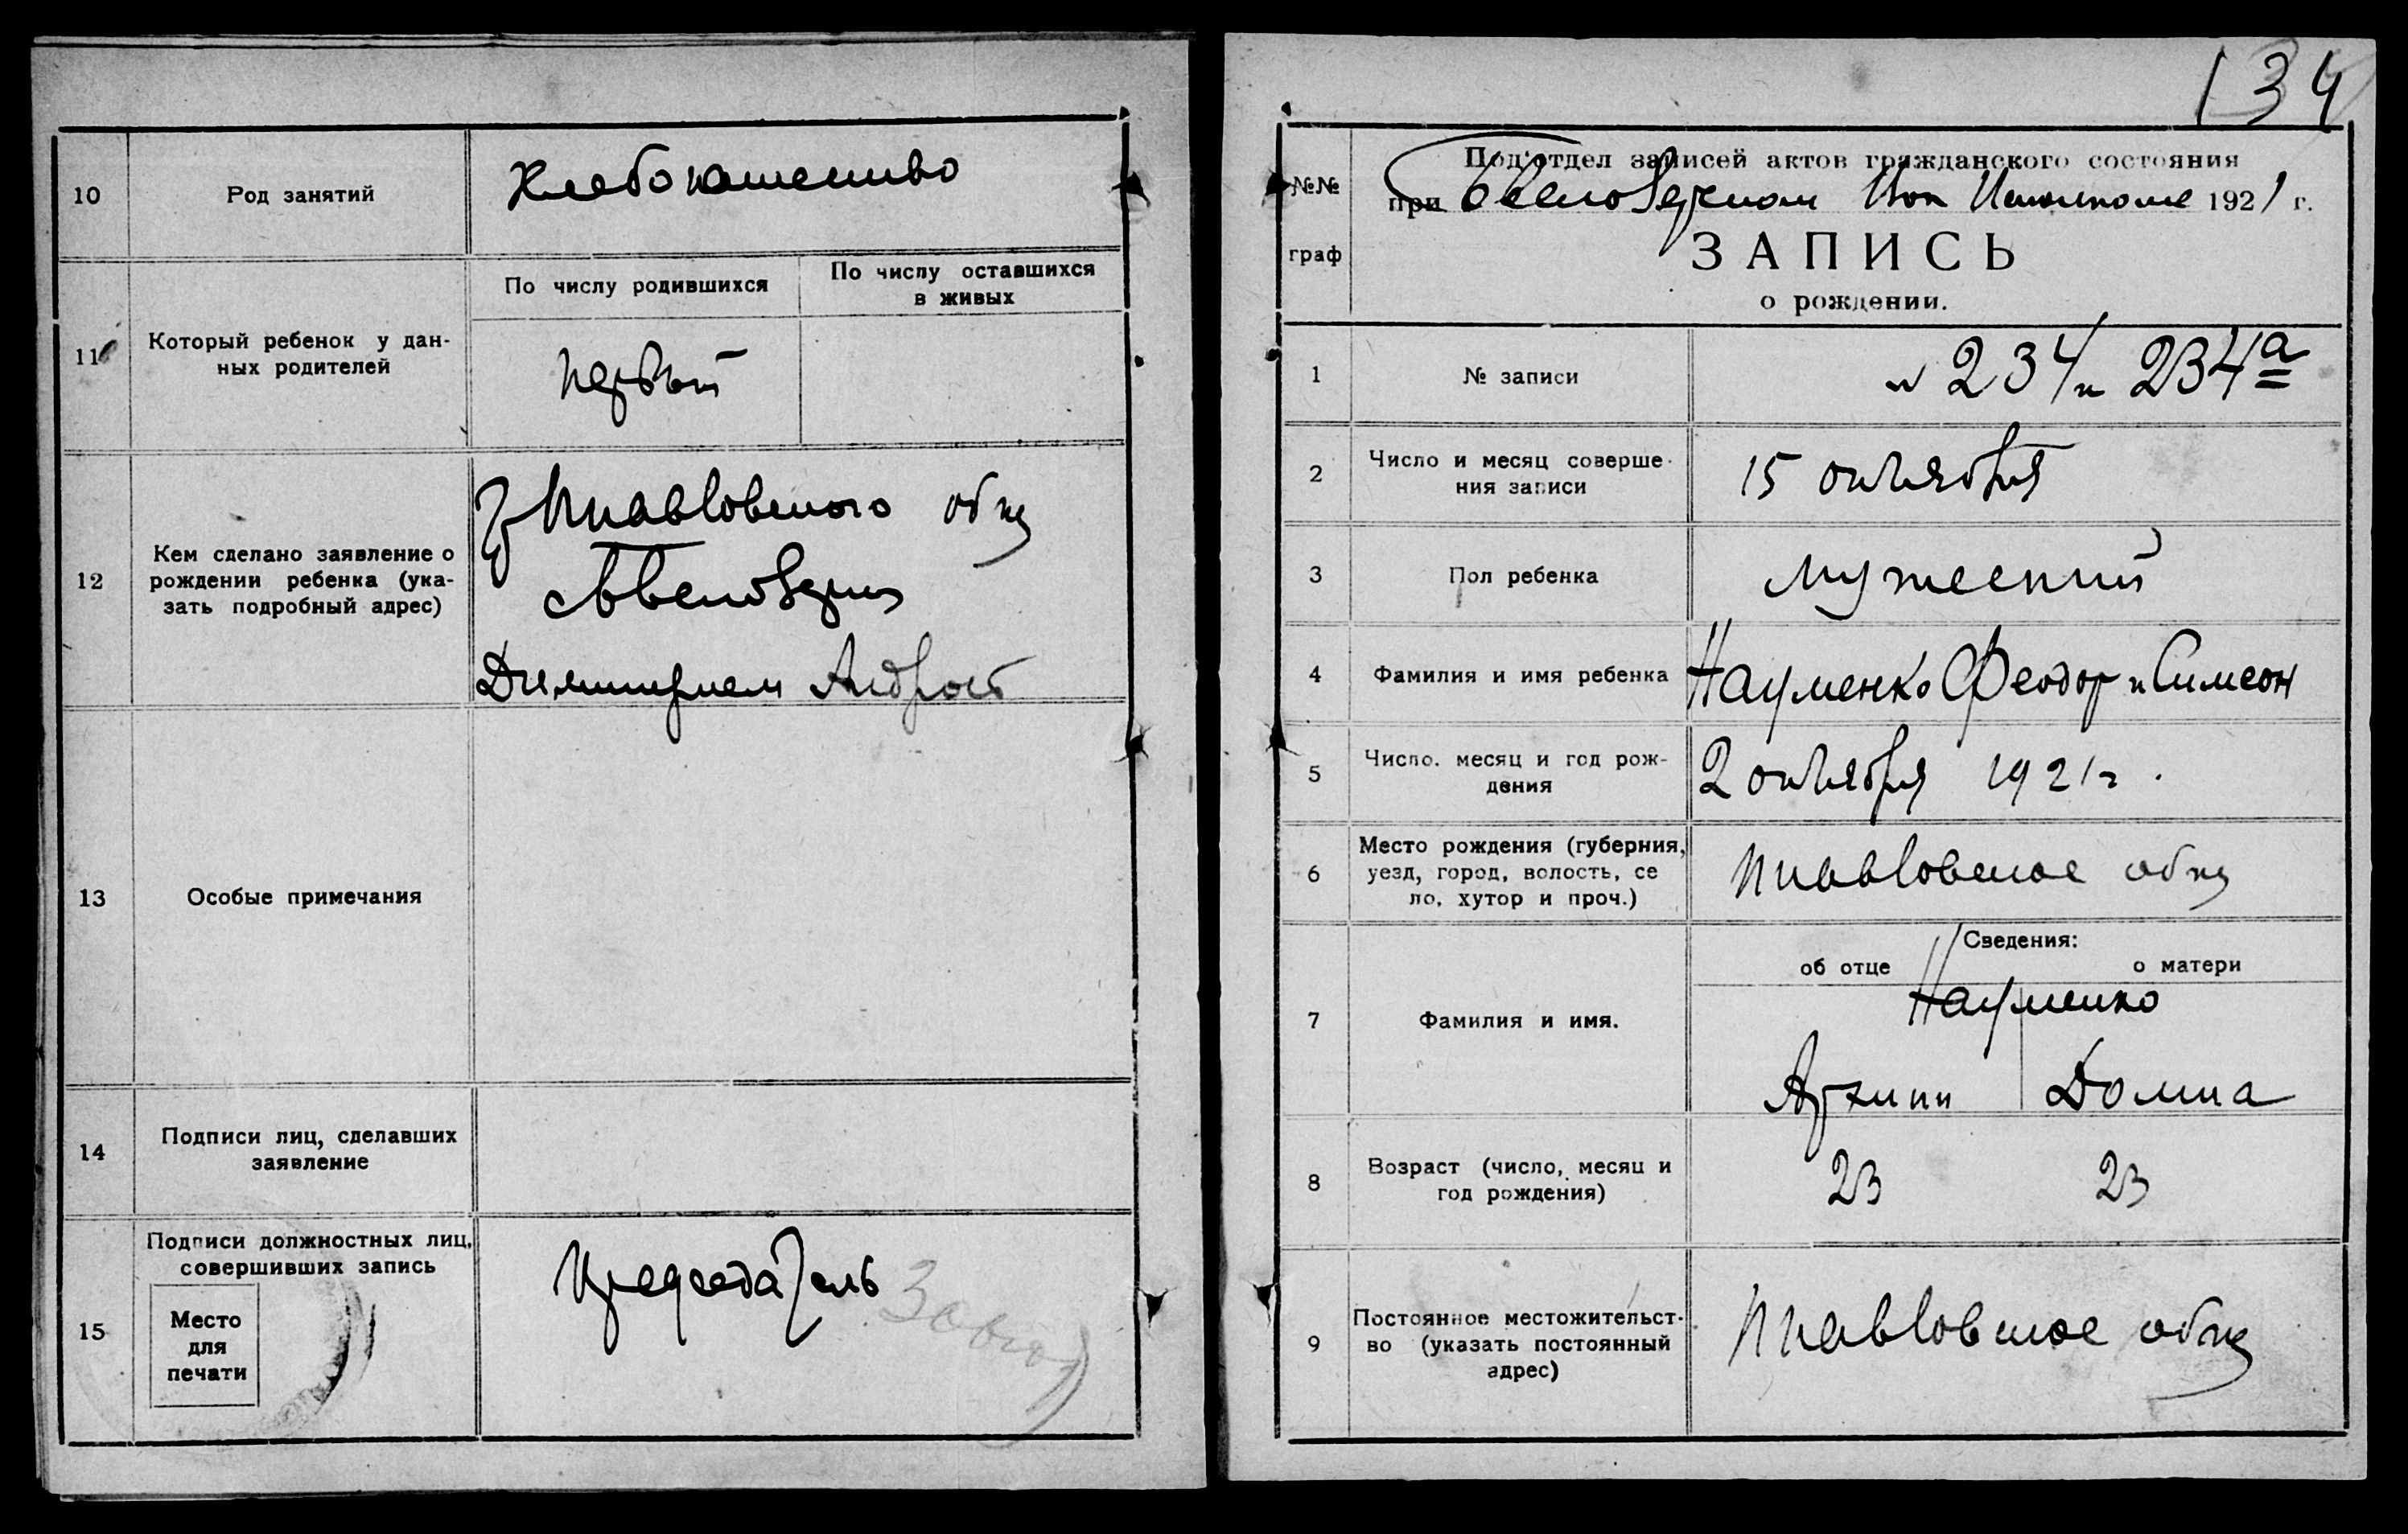 10
Род занятий
Хлебопашество
11
Который ребенок у дан-
ных родителей
По числу родившихся
По числу оставшихся
в живых
первый
12
Кем сделано заявление о
рождении ребенка (ука-
зать подробный адрес)
общ
Димитрием
13
Особые примечания
14
Подписи лиц, сделавших
заявление
15
Подписи должностных лиц,
совершивших запись
Место
для
печати
Председатель
134
№№
граф
Под'отдел записей актов гражданского состояния
при Исполкоме 1921 г.
ЗАПИСЬ
о рождении.
1
№ записи
№ 234 и 234а
2
Число и месяц соверше-
ния записи
15 октября
3
Пол ребенка
мужеский
4
Фамилия и имя ребенка
Науменко Феодор и Симеон
5
Число. месяц и год рож-
дения
2 октября 1921 г.
6
Место рождения (губерния,
уезд, город, волость, се
ло, хутор и проч.)
общ
7
Фамилия и имя.
Сведения:
об отце
о матери
Науменко
Архипп
Домна
8
Возраст (число, месяц и
год рождения)
23
23
9
Постоянное местожительст-
во (указать постоянный
адрес)
общ